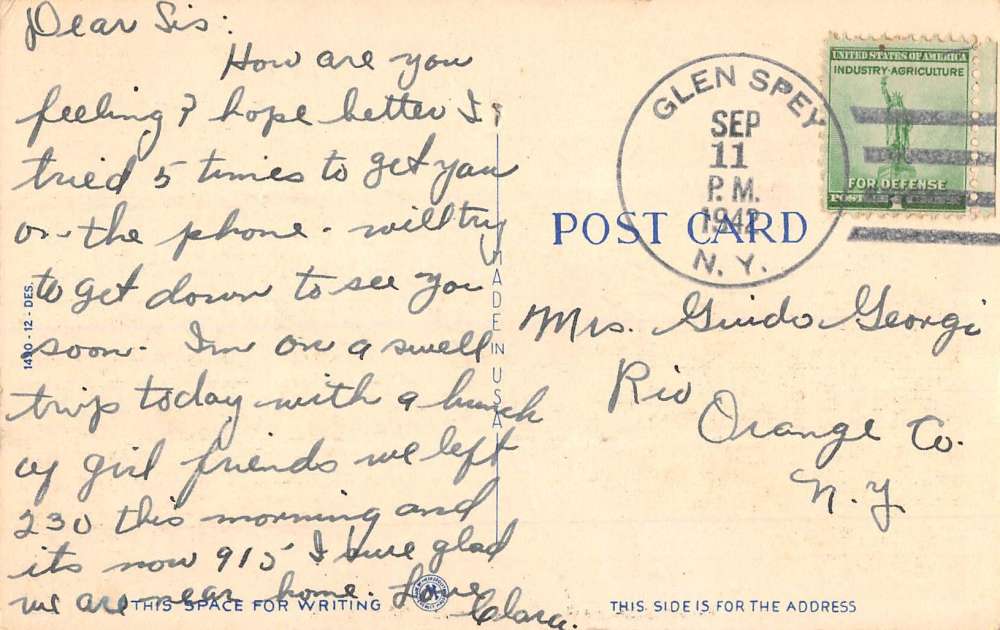 Dear Sis:
How are you
feeling? hope better I
tried 5 times to get you
on the phone - will try
to get down to see you
soon. Im on a swell
trip today with a bunch
of girl friends we left
230 this morning and
its now 915 I sure glad
we are near home. Love
Clara.
1490-12-DES.
MADE IN USA
THIS SPACE FOR WRITING
GLEN SPEY
SEP
11
P.M.
1942
N.Y.
UNITED STATES OF AMERICA
INDUSTRY·AGRICULTURE
FOR DEFENSE
POST CARD
Mrs. Guido Georgi
Rio
Orange Co.
N.Y.
THIS SIDE IS FOR THE ADDRESS